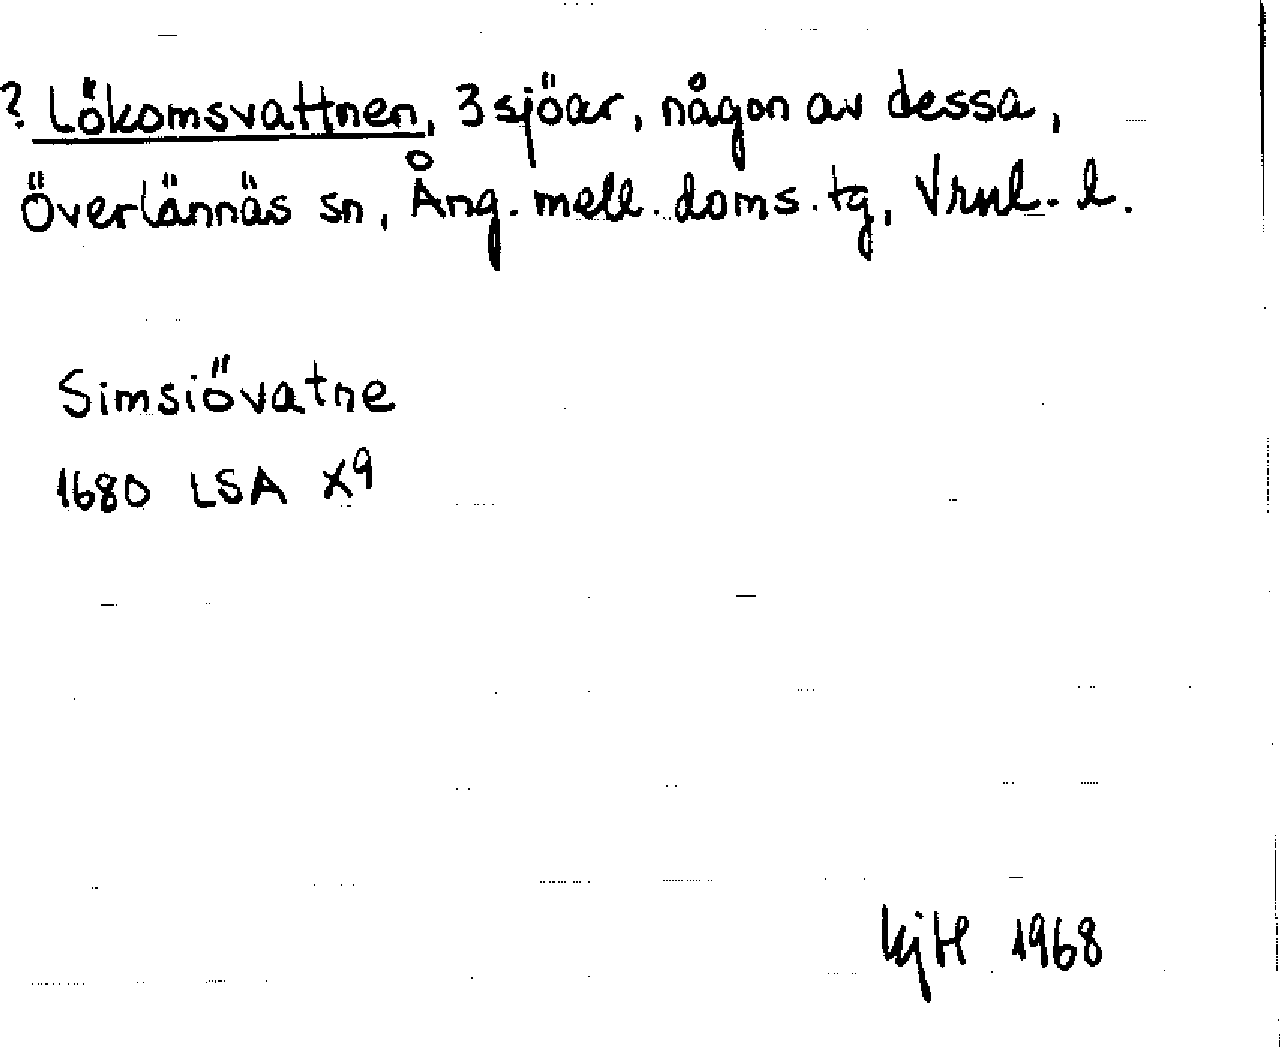 ? Lökomsvattnen, 3 sjöar, någon av dessa,
Överlännäs sn, Ång. mell. doms. tg, Vrnl. l.
Simsiövatne
1680 LSA X9
KjH 1968